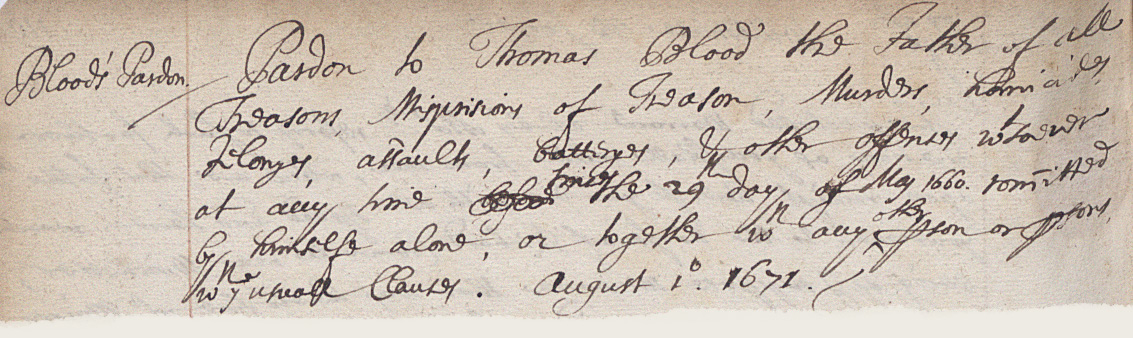 Blood's Pardon.
Pardon to Thomas Blood the Father of all
Treasons, Misprisions of Treason, Murders, homicides,
felonyes, assaults, batteryes, & other offenses wtsoever
at any time before since the 29th day of May 1660. committed
by himselfe alone, or together wth any other pson or psons,
wth ye usuall Clauses. August 1o. 1671.